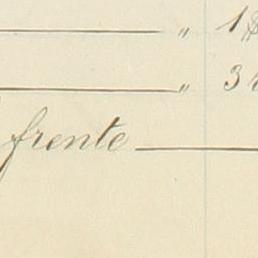 " 1$
" 3
frente